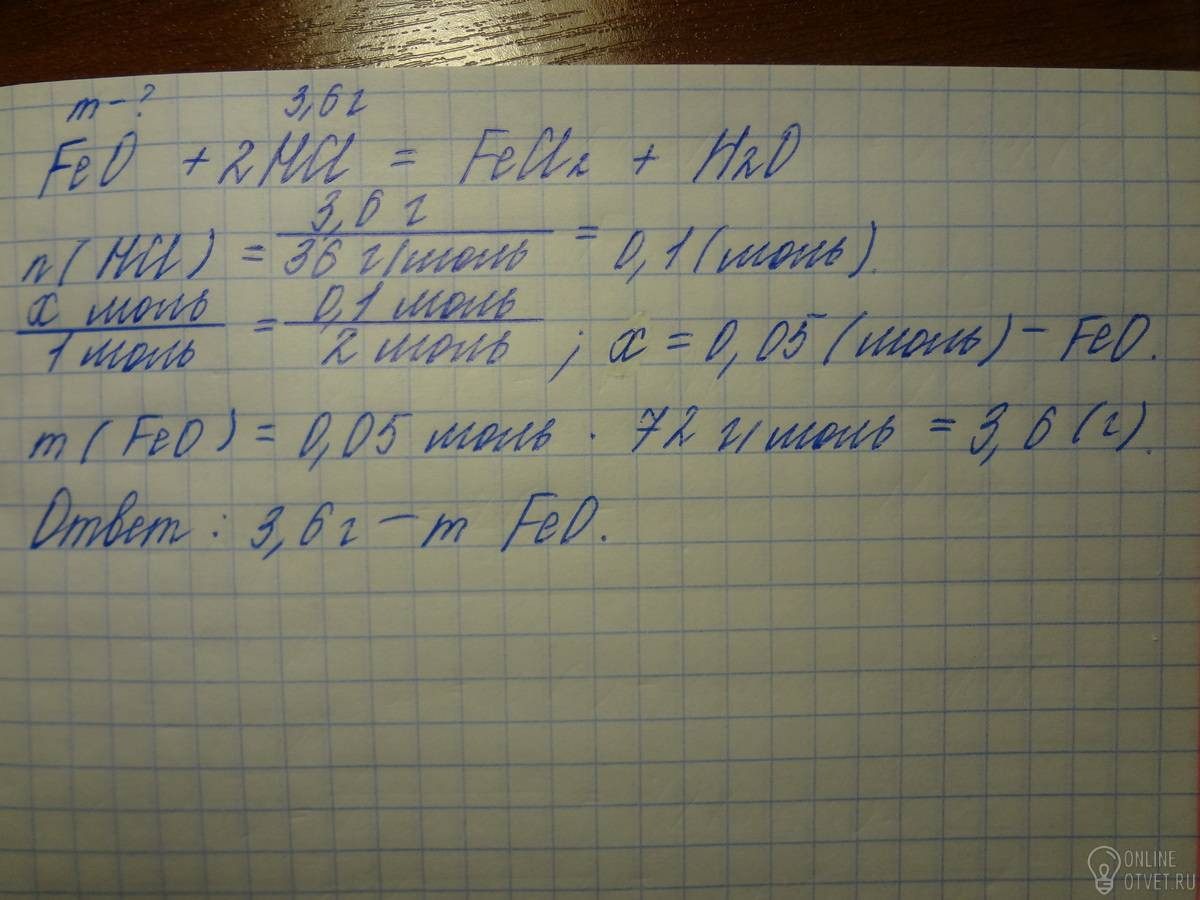 m-? 3,6 г
FeO + 2HCl = FeCl2 + H2O
n(HCl) = 3,6 г / 36 г/моль = 0,1 (моль).
x моль / 1 моль = 0,1 моль / 2 моль ; x = 0,05 (моль) - FeO.
m(FeO) = 0,05 моль · 72 г/моль = 3,6 (г).
Ответ: 3,6 г - m FeO.
ONLINE
OTVET.RU